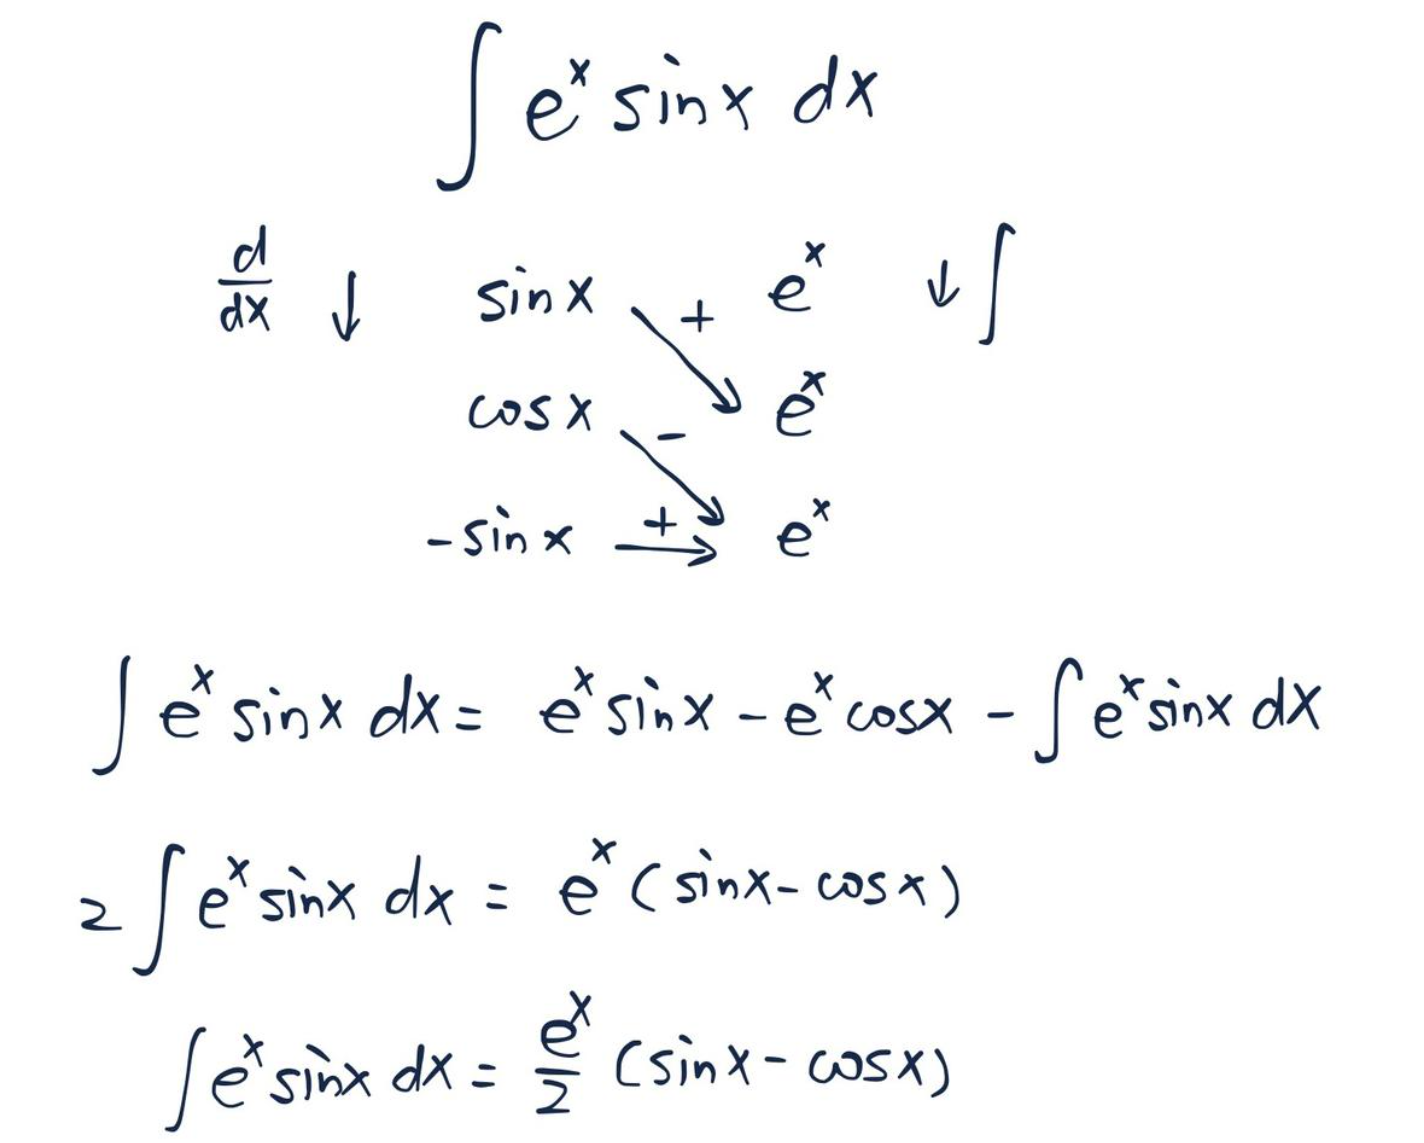 ∫ eˣ sinx dx
d/dx ↓ sinx + eˣ ↓ ∫
cosx - eˣ
-sinx + eˣ
∫ eˣ sinx dx = eˣ sinx - eˣ cosx - ∫ eˣ sinx dx
2 ∫ eˣ sinx dx = eˣ (sinx - cosx)
∫ eˣ sinx dx = eˣ/2 (sinx - cosx)